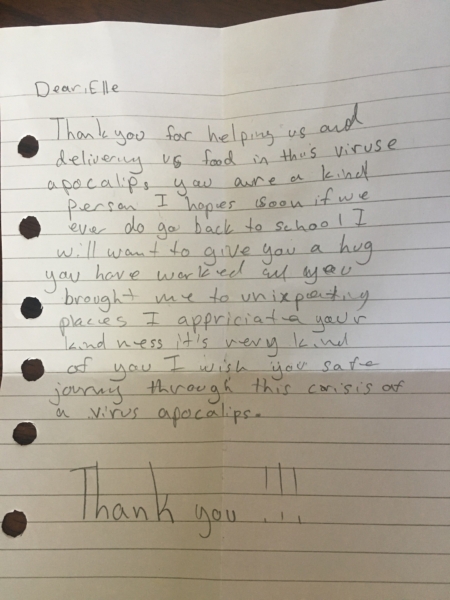 Dear, Elle
Thank you for helping us and
delivering us food in this viruse
apocalips, you are a kind
person I hopes soon if we
ever do go back to school I
will want to give you a hug
you have worked all you
brought me to unixpecting
places I appriciate your
kindness it's very kind
of you I wish you safe
journy through this crisis of
a virus apocalips.
Thank you !!!